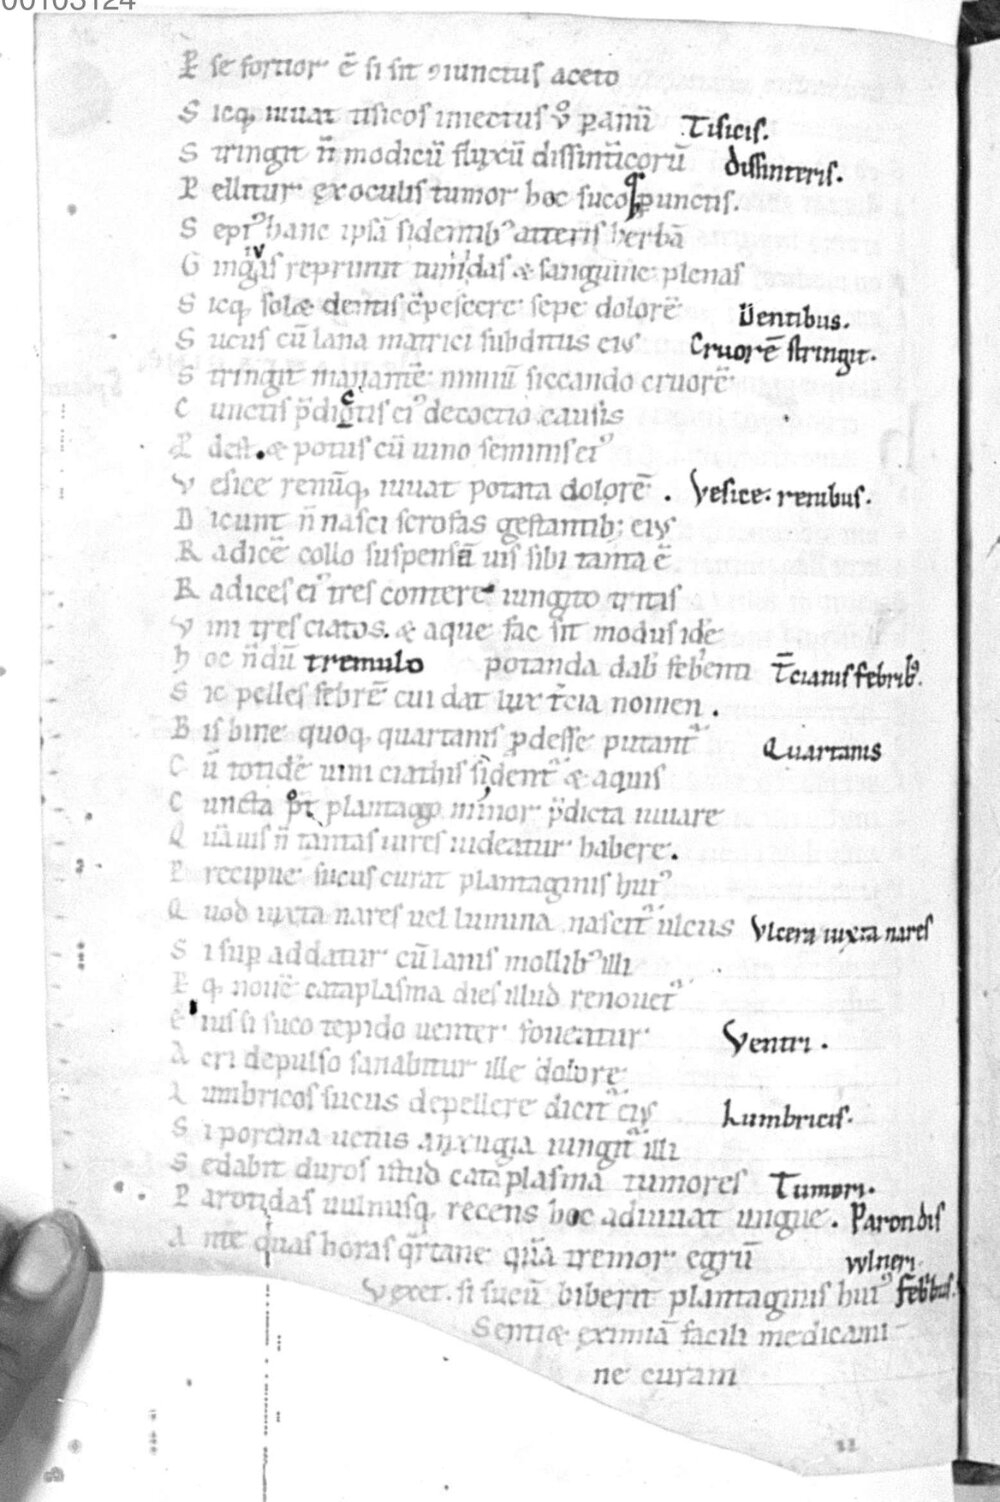 00103124
P se fortior ē si sit ꝯiunctus aceto
S icq, iuuat tisicos iniectus ꝟo p anū Tisicis.
S tringit n̄ modicū fluxū dissinticorū dissinteris.
P ellitur ex oculis tumor hoc suco punctis.
S epi hanc ipsā sidentibꝰ atteris herbā
G ingiuas reprimit tumidas & sanguine plenas
S icq, solæ dentis ꝯpescere sepe dolorē Dentibus.
S ucus cū lana matrici subditus eius Cruorē stringit.
S tringit manantē nimiū siccando cruorē
C unctis p̄dictis eiꝰ decoctio causis
P dest. & potus cū uino seminis eiꝰ
V esice renūq, iuuat potata dolorē. Vesice. renibus.
D icunt n̄ nasci scrofas gestantib; eius
R adicē collo suspensā uis sibi tanta ē
R adices eiꝰ tres contere iungito tritas
V ini tres ciatos. & aque fac sit modus idē
h oc n̄dū tremulo potanda dab febrienti T̄cianis febribꝰ.
S ic pelles febrē cui dat lux t̄cia nomen.
B is bine quoq, quartanis ꝓdesse putant Quartanis
C ū totidē uini ciathis si dent & aquis
C uncta pot plantago minor p̄dicta iuuare
Q uāuis n̄ tantas uires uideatur habere.
P recipue sucus curat plantaginis huiꝰ
Q uod iuxta nares uel lumina nascit ulcus Vlcera iuxta nares
S i sup addatur cū lanis mollibꝰ illi
P q, nouē cataplasma dies illud renouet
E ius si suco tepido uenter foueatur Ventri.
A eri depulso sanabitur ille dolore
L umbricos sucus depellere dicit eius Lumbricis.
S i porcina uetus anxugia iungit illi
S edabit duros istud cataplasma tumores Tumori.
P arotidas uulnusq, recens hoc adiuuat ungue. Parondis
A nte quas horas q̄rtane quā tremor egrū vvlneri.
Vexet. si sucū biberit plantaginis huiꝰ febribus.
Sentiæ eximiā facili medicami
ne curam